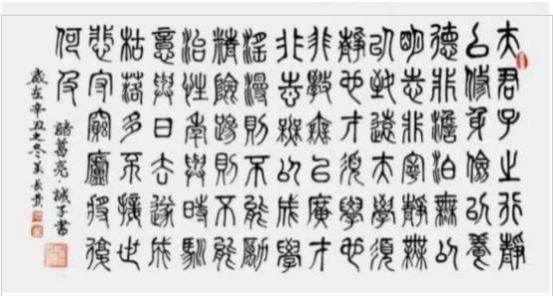 夫君子之行靜
以修身儉以養
德非澹泊無以
明志非寧靜無
以致遠夫學須
靜也才須學也
非學無以廣才
非志無以成學
淫漫則不能勵
精險躁則不能
治性年與時馳
意與日去遂成
枯落多不接世
悲守窮廬將復
何及
諸葛亮誡子書
歲在辛丑之冬